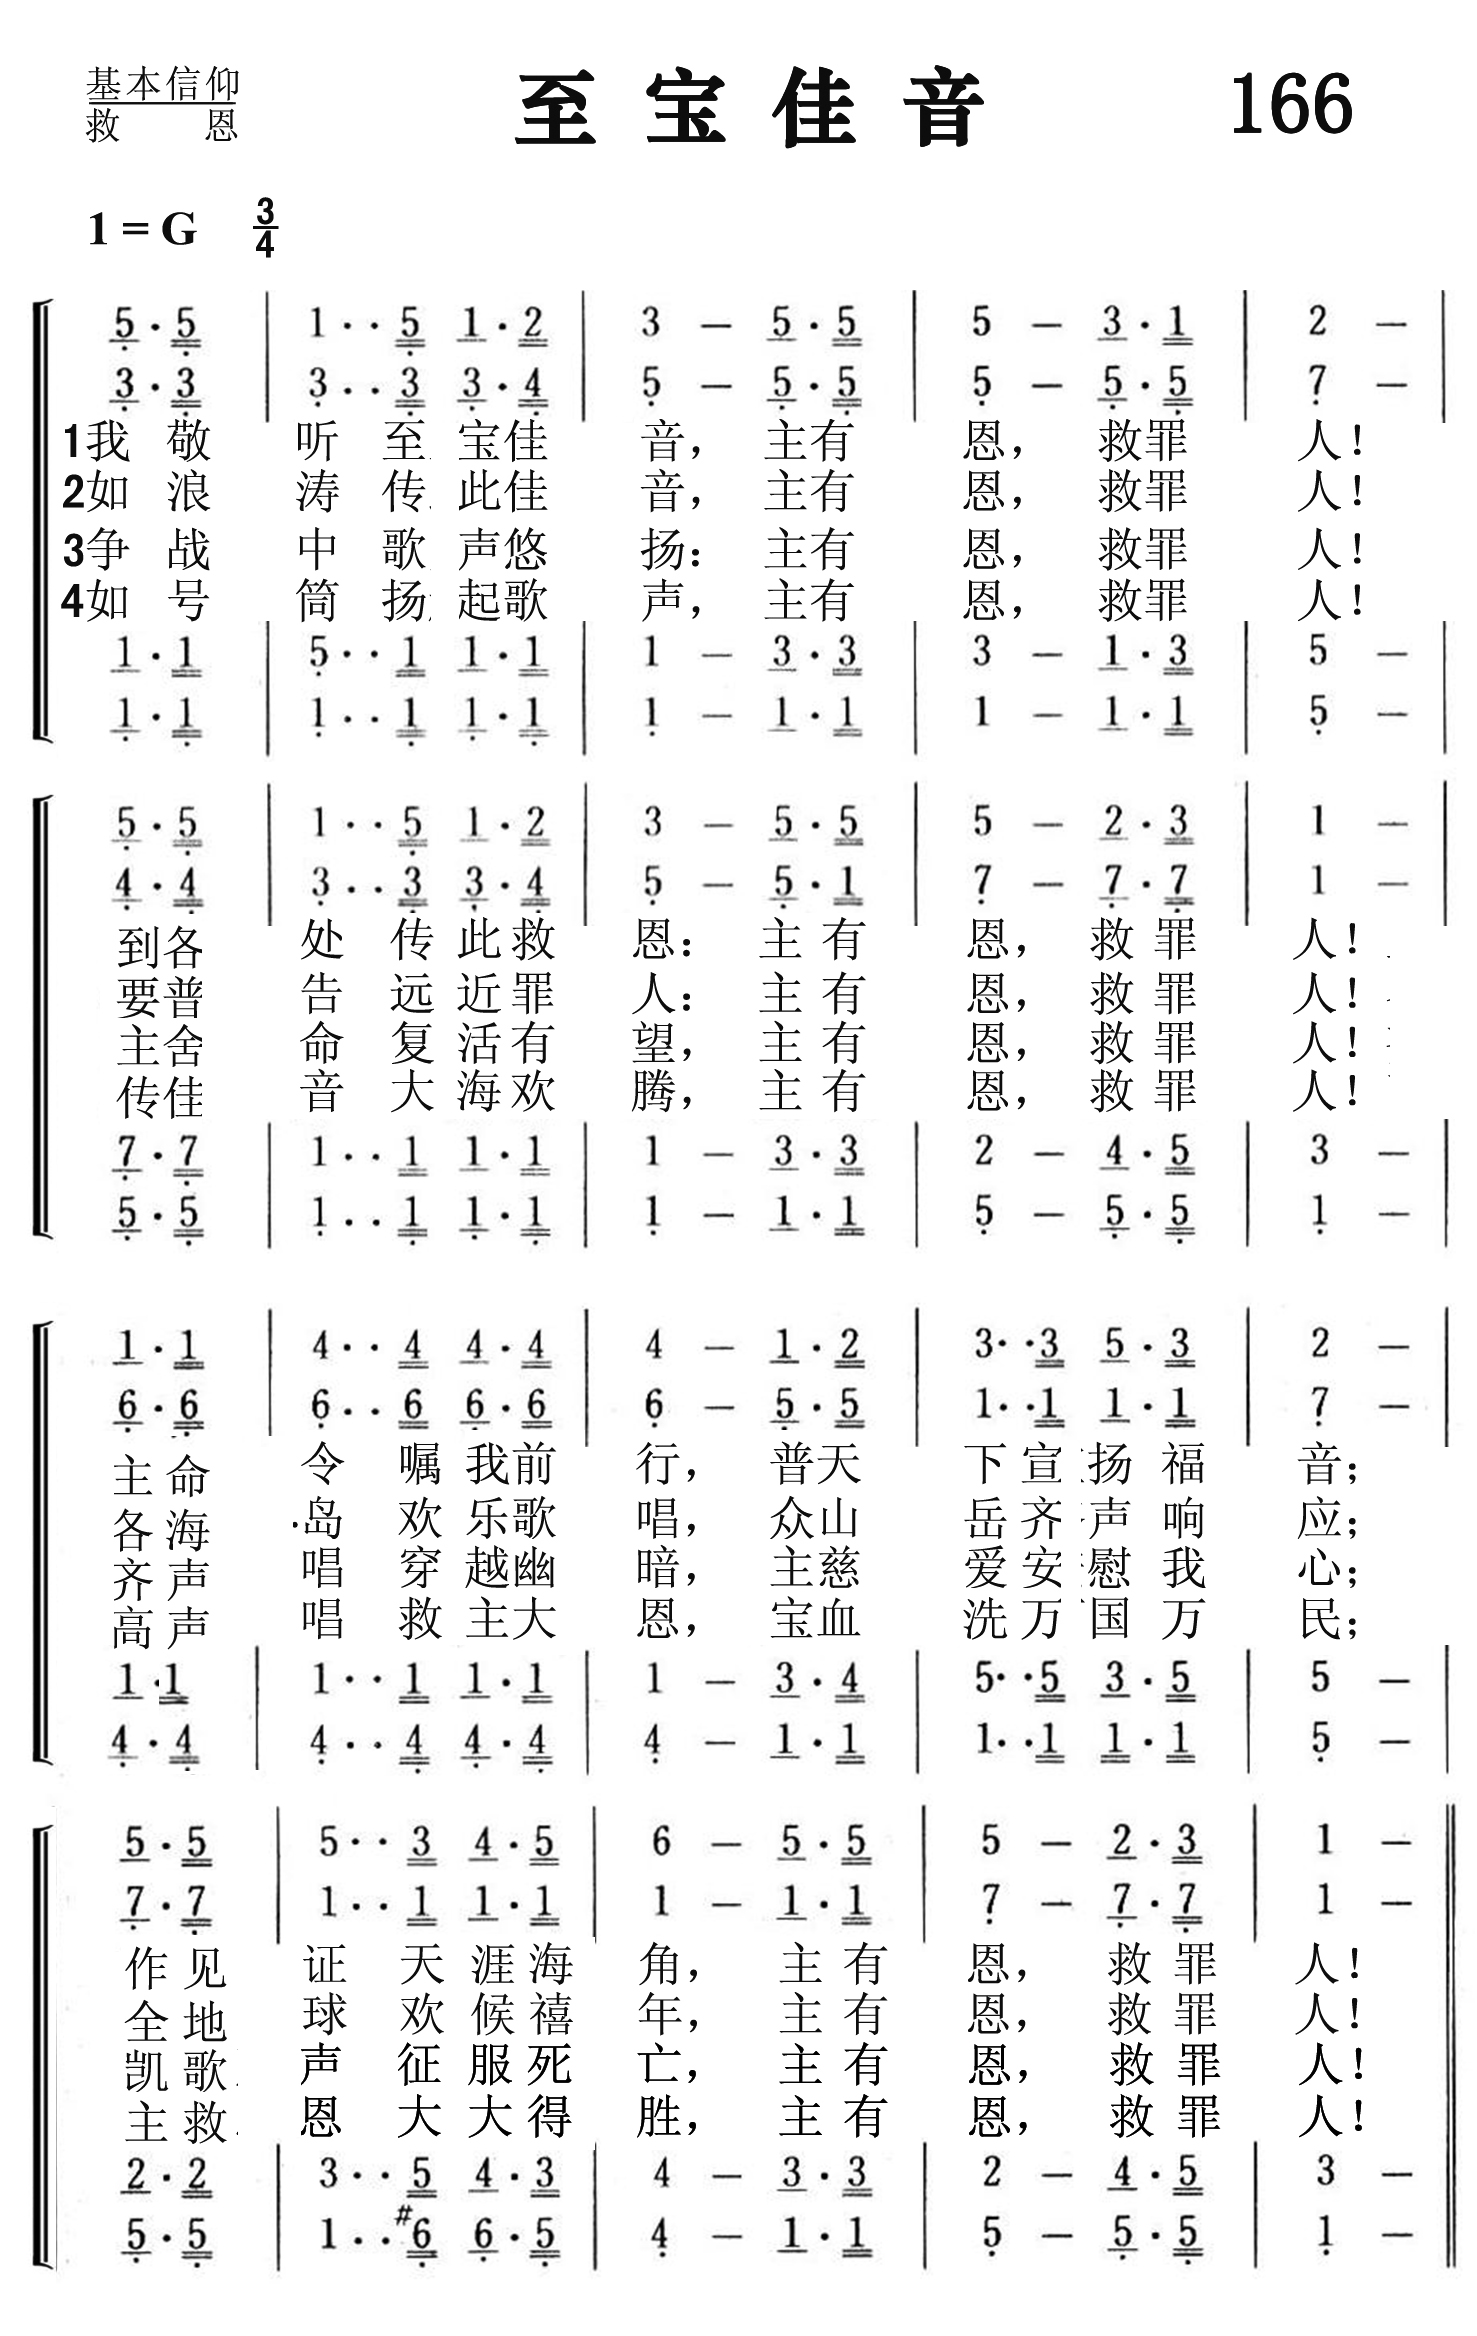 基本信仰
救 恩
至宝佳音
166
1 = G 3/4
5 · 5 | 1 · · 5 1 · 2 | 3 — 5 · 5 | 5 — 3 · 1 | 2 — |
3 · 3 | 3 · · 3 3 · 4 | 5 — 5 · 5 | 5 — 5 · 5 | 7 — |
1我 敬 听 至 宝佳 音， 主有 恩， 救罪 人！
2如 浪 涛 传 此佳 音， 主有 恩， 救罪 人！
3争 战 中 歌 声悠 扬： 主有 恩， 救罪 人！
4如 号 筒 扬 起歌 声， 主有 恩， 救罪 人！
1 · 1 | 5 · · 1 1 · 1 | 1 — 3 · 3 | 3 — 1 · 3 | 5 — |
1 · 1 | 1 · · 1 1 · 1 | 1 — 1 · 1 | 1 — 1 · 1 | 5 — |
5 · 5 | 1 · · 5 1 · 2 | 3 — 5 · 5 | 5 — 2 · 3 | 1 — |
4 · 4 | 3 · · 3 3 · 4 | 5 — 5 · 1 | 7 — 7 · 7 | 1 — |
到各 处 传 此救 恩： 主 有 恩， 救 罪 人！
要普 告 远 近罪 人： 主 有 恩， 救 罪 人！
主舍 命 复 活有 望， 主 有 恩， 救 罪 人！
传佳 音 大 海欢 腾， 主 有 恩， 救 罪 人！
7 · 7 | 1 · · 1 1 · 1 | 1 — 3 · 3 | 2 — 4 · 5 | 3 — |
5 · 5 | 1 · · 1 1 · 1 | 1 — 1 · 1 | 5 — 5 · 5 | 1 — |
1 · 1 | 4 · · 4 4 · 4 | 4 — 1 · 2 | 3 · · 3 5 · 3 | 2 — |
6 · 6 | 6 · · 6 6 · 6 | 6 — 5 · 5 | 1 · · 1 1 · 1 | 7 — |
主 命 令 嘱 我前 行， 普天 下 宣扬 福 音；
各 海 岛 欢 乐歌 唱， 众山 岳 齐声 响 应；
齐 声 唱 穿 越幽 暗， 主慈 爱 安慰 我 心；
高 声 唱 救 主大 恩， 宝血 洗 万国 万 民；
1 · 1 | 1 · · 1 1 · 1 | 1 — 3 · 4 | 5 · · 5 3 · 5 | 5 — |
4 · 4 | 4 · · 4 4 · 4 | 4 — 1 · 1 | 1 · · 1 1 · 1 | 5 — |
5 · 5 | 5 · · 3 4 · 5 | 6 — 5 · 5 | 5 — 2 · 3 | 1 — ||
7 · 7 | 1 · · 1 1 · 1 | 1 — 1 · 1 | 7 — 7 · 7 | 1 — ||
作 见 证 天 涯 海 角， 主 有 恩， 救 罪 人！
全 地 球 欢 候 禧 年， 主 有 恩， 救 罪 人！
凯 歌 声 征 服 死 亡， 主 有 恩， 救 罪 人！
主 救 恩 大 大 得 胜， 主 有 恩， 救 罪 人！
2 · 2 | 3 · · 5 4 · 3 | 4 — 3 · 3 | 2 — 4 · 5 | 3 — ||
5 · 5 | 1 · · #6 6 · 5 | 4 — 1 · 1 | 5 — 5 · 5 | 1 — ||